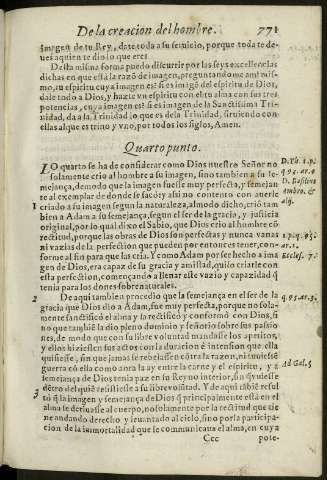 De la creacion del hombre. 771
imagen de tu Rey, date toda a su seruicio, porque toda te de-
ues a quien te dio lo que eres
Desta misma forma puedo discurrir por las seys excellencias
dichas en que està la razõ de imagen, preguntando me ami mis-
mo, su espiritu cuya imagen es? si es imagẽ del espiritu de Dios,
dale todo a Dios, y hazte vn espiritu con el: tu alma con sus tres
potencias, cuya imagen es? si es imagen de la Sanctissima Tri-
nidad, da a la Trinidad lo que es dela Trinidad, siruiendo con
ellas al que es trino y vno, por todos los siglos, Amen.
Quarto punto.
LO quarto se ha de considerar como Dios nuestro Señor no
solamente crio al hombre a su imagen, sino tambien a su se-
mejança, de modo que la imagen fuesse muy perfecta, y semejan
te al exemplar de donde se sacò: y assi no contento con auerle
criado a su imagen segun la naturaleza, al modo dicho, criò tam
bien a Adam a su semejança, segun el ser de la gracia, y justicia
original, por lo qual dixo el Sabio, que Dios crio al hombre cõ
rectitud, porque las obras de Dios son perfectas y nunca vanas
ni vazias de la perfection que pueden por entonces tener, con-
forme al fin para que las cria. Y como Adam por ser hecho a ima
gen de Dios, era capaz de su gracia y amistad, quiso criarle con
esta perfection, començando a llenar este vazio y capacidad q̃
tenia para los dones sobrenaturales.
De aqui tambien procedio que la semejança en el ser de la
gracia que Dios dio a Adam, fue muy perfecta, porque no sola-
mente sanctificò el alma y la rectificò y conformò con Dios, si
no que tambiẽ la dio pleno dominio y señorio sobre sus passio-
nes, de modo que con su libre voluntad mandasse los apetitos,
y ellos hiziessen sus actos con la duracion ẽ intension que ella
quisiesse, sin que jamas se rebelassen cõtra la razon, ni vuiesse
guerra cõ ella como aora la ay entre la carne y el espiritu, y a
semejança de Dios tenia paz en su Reyno interior, sin q̃ vuiesse
dẽtro del quiẽ resistiesse a su libre volũtad. Y de aqui tãbiẽ resul
tò q̃ la imagen y semejança de Dios q̃ principalmente està en el
alma se deriuasse al cuerpo, no solamente por la rectitud que tie
ne andando derecho y leuantado al cielo, sino por la participa-
cion de la immortalidad que se communicaua el alma, en cuya
Ccc pote-
1
2
3
D. Th. 1. p.
q. 93. ar. 9
D. Basilius
Ambro. &
alij.
1. p. q. 95.
ar. 1.
Eccles. 7.
q. 95. ar. 3.
Ad Gal. 5